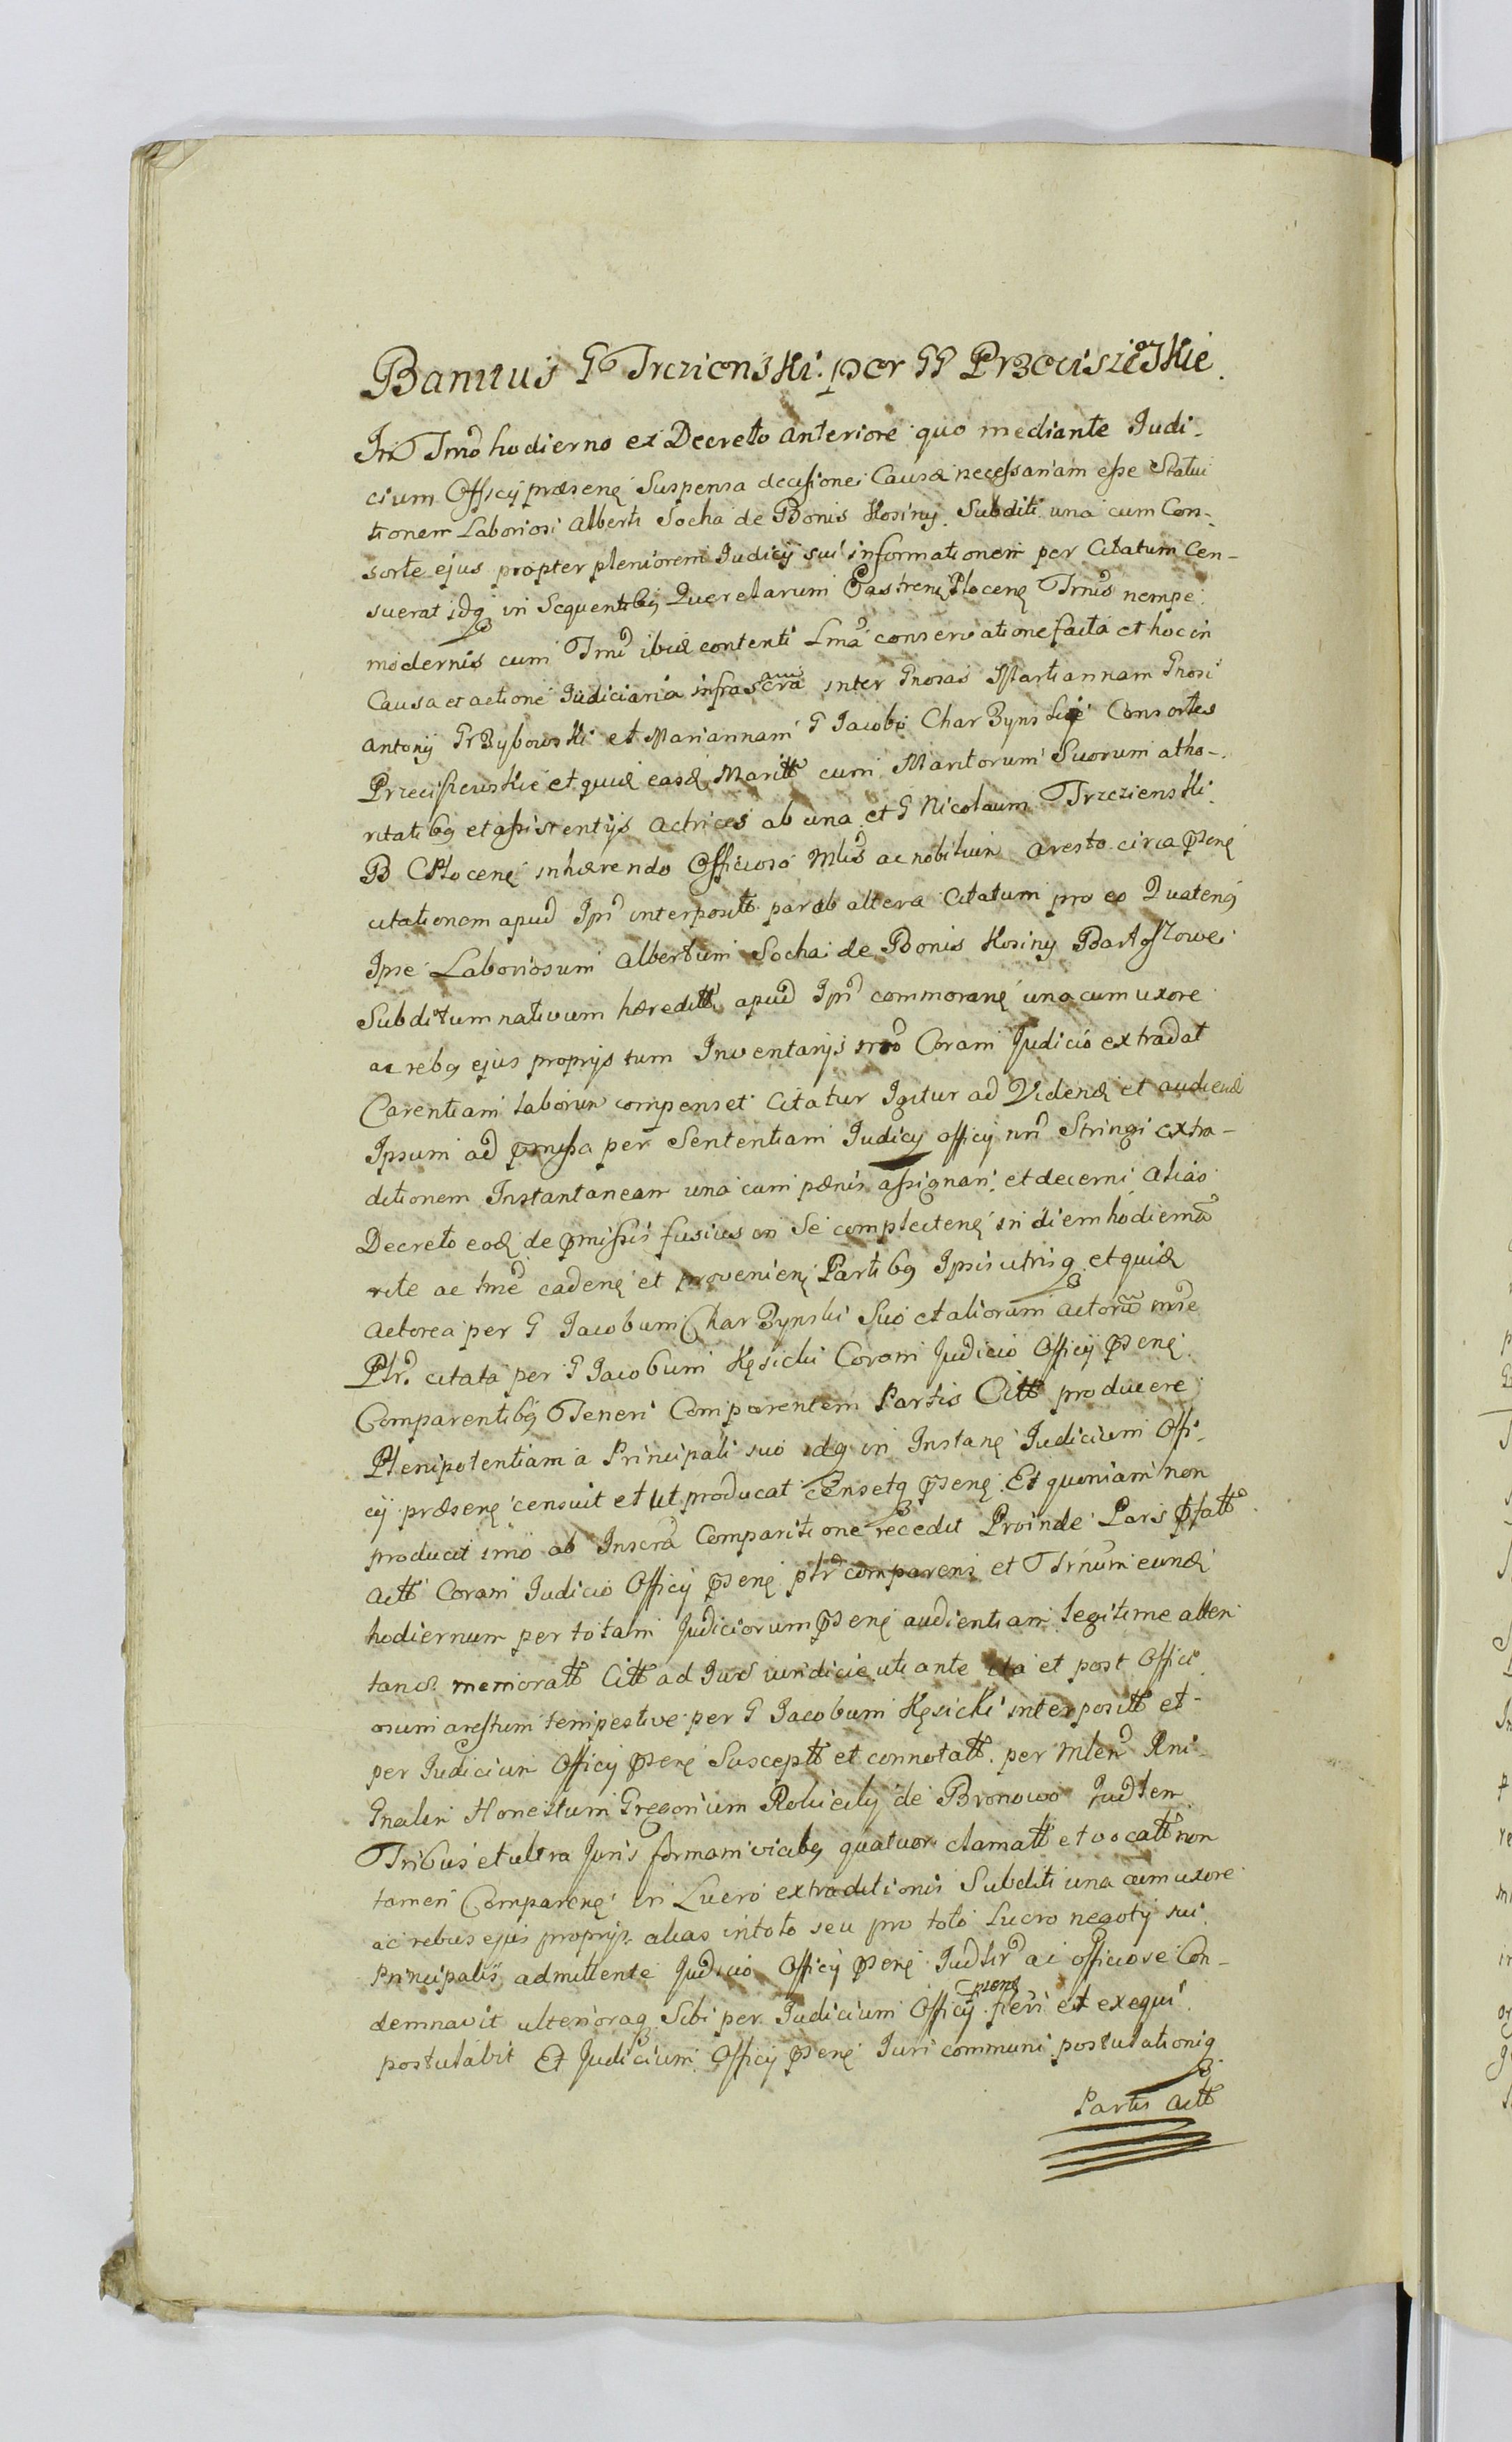 Banitus G Trczienski per GG Przeciszewskie
In Tmo hodierno ex Decreto anteriore quo mediante Judi-
cium Officij præsenę Suspensa decisionei Causæ necessariam esse Statui
tionem Laboriosi Alberti Socha de Bonis Kosiny Subditi una cum Con-
sorte ejus propter pleniorem Judicij sui informationem per Citatum Cen-
suerat idq in Sequentibg Querelarum Castrenę Plocenę Trnis nempe
modernis cum Tmi ibid contenti Lmâ conservatione facta et hoc in
Causa et actione Judiciaria infrascra inter Gnosas Mariannam Gnosi
Antonij Grzybowski et Mariannam G Jacobi Charzynskie Consortes
Przeciszewskie et quid easd Maritt cum Maritorum Suorum atho-
ritatibg et assistentijs Actrices ab una et G Nicolaum Trzczienski
B C Plocenę inhærendo Officioso Mlis ac nobilium aresto circa psenę
citationem apud Ipm interposito par ab altera Citatum pro eo Quateng
Ipse Laboriosum Albertum Socha de Bonis Kosiny Bartoszowe
Subditum nativum hæreditt apud Ipm commoranę una cum uxore
ac rebg ejus proprijs tum Inventarijs imo Coram Judicio extradat
Carentiam laborum compenset Citatur Igitur ad Videnđ et audienđ
Ipsum ad pmissa per Sententiam Judicij officij nri Stringi extra-
ditionem Instantaneam una cum pænis assignari et decerni alias
Decreto eođ de pmissis fusius in Se complectenę in diem hodiernâ
rite ac lme cadenę et provenienę Partibg Ipsis utrisq et quiđ
Actorea per G Jacobum Charzynski Suo et aliorum actorũ nne
Pltr citata per G Jacobum Kęsicki Coram Judicio Officij psenę
Comparentibg Teneri Comparentem Partis Citt producere
Plenipotentiam a Principali suo idq in Instanę Judicium Offi-
cij præsenę censuit et ut producat censetq psenę Et quoniam non
producit imo ab Inscra Comparitione recedit Proinde Pars pfatt
Actt Coram Judicio Officij psenę pltr comparens et Trnum eunđ
hodiernum per totam Judiciorum psenę audientiam legitime atten
tanđ memoratt Citt ad Jura iuridicie uti ante ita et post Offici
osum arestum tempestive per G Jacobum Kęsicki interpositt et
per Judicium Officij psenę Susceptt et connotatt per Mlem Rni
Gnalem Honestum Gregorium Rokicily de Bronowo Judlem
Tribus et ultra Juris formam vicibg quatuor clamatt et vocatt non
tamen Comparenę in Lucro extraditionis Subditi una cum uxore
ac rebus ejus proprijs alias in toto seu pro toto Lucro negotij sui
Principalis admittente Judicio Officij psenę Judlir ac officiose Con-
demnavit ulterioraq Sibi per Judicium Officij psenę fieri et exequi
postulabit Et Judicium Officij psenę Juri communi postulationiq
Partis Actt